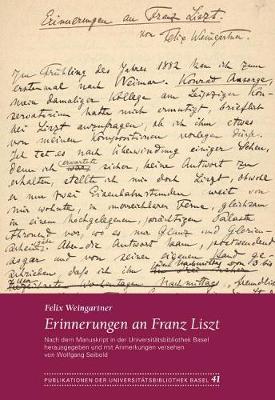 Erinnerungen an Franz Liszt
von Felix Weingartner
Im Frühling des Jahres 1882 kam ich zum
erstenmal nach Weimar. Konrad Ansorge,
mein damaliger Kollege am Leipziger Kon-
servatorium hatte mich ermutigt, brieflich
bei Liszt anzufragen, ob ich ihm etwas
von meinen Kompositionen vorlegen dürfe.
Ich tat es nach Überwindung einiger Scheu,
denn ich erwartete keine Antwort zu
erhalten, stellte ich mir doch Liszt, obwohl
er nur zwei Eisenbahnstunden weit von
mir wohnte, in unerreichbarer Ferne, gleichsam
in einem hochgelegenen, prächtigen Palaste
thronend vor, wo es nur Glanz und Glorien
Aber die Antwort kam, postwendend
sogar und von seiner eigenen Hand ge-
schrieben, dass ich ihn
Nachmittags
Felix Weingartner
Erinnerungen an Franz Liszt
Nach dem Manuskript in der Universitätsbibliothek Basel
herausgegeben und mit Anmerkungen versehen
von Wolfgang Seibold
PUBLIKATIONEN DER UNIVERSITÄTSBIBLIOTHEK BASEL 41